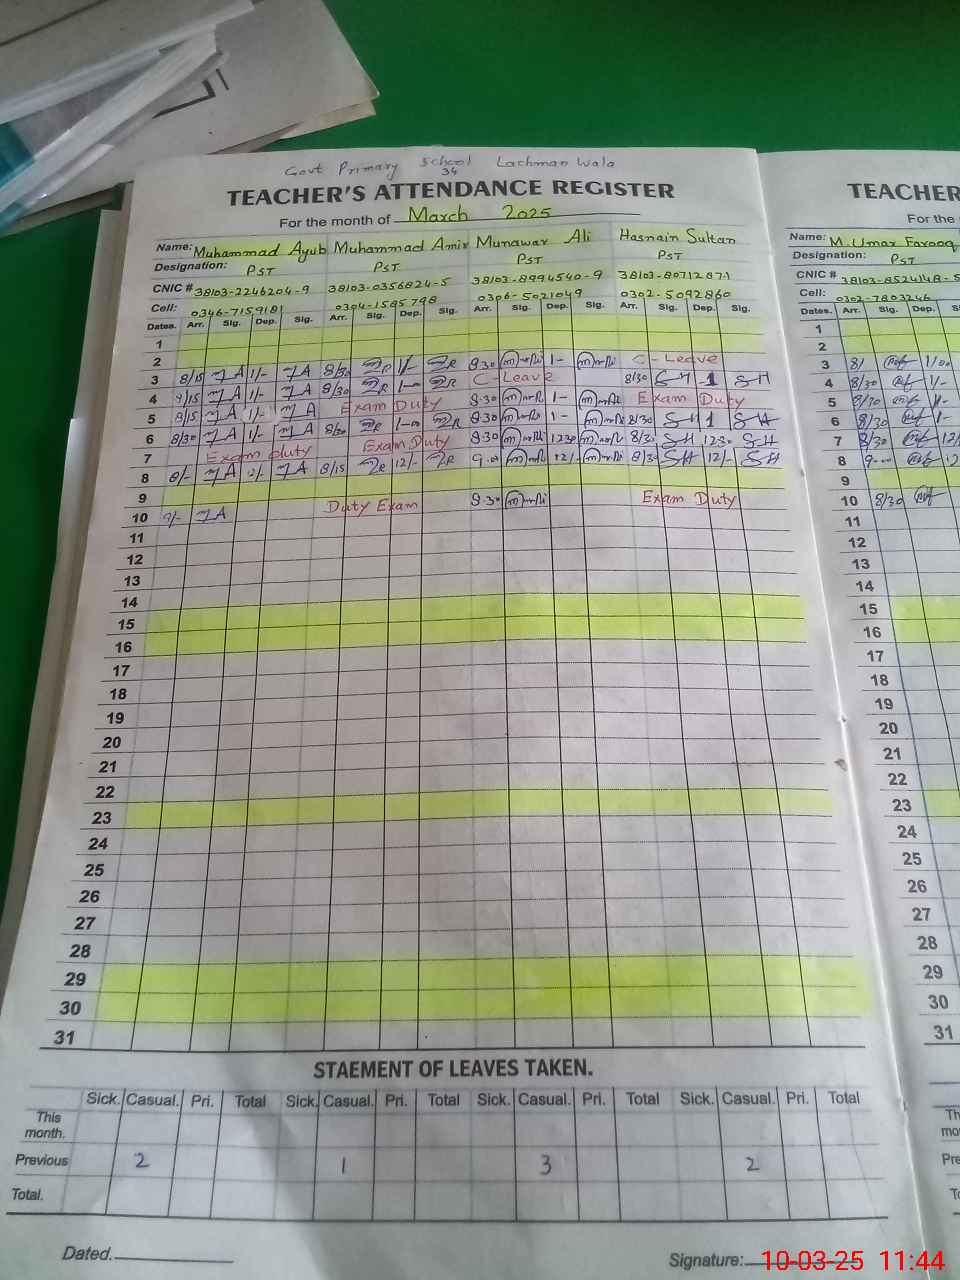 Govt Primary School Lachman Wala
34
TEACHER'S ATTENDANCE REGISTER
For the month of March 2025
Name: Muhammad Ayub Muhammad Amir Munawar Ali Hasnain Sultan
Designation: PST PST PST PST
CNIC # 38103-2246204-9 38103-0356824-5 38103-8994540-9 38103-8071287-1
Cell: 0346-7159181 0304-1585798 0306-5021049 0302-5092860
Dates. Arr. Sig. Dep. Sig. Arr. Sig. Dep. Sig. Arr. Sig. Dep. Sig. Arr. Sig. Dep. Sig.
1
2
3 8/15 1/- 8/30 1/- 8 30 1- C-Leave
4 8/30 C-Leave 8/30 1
5 8/15 1/- Exam Duty 8 30 1- Exam Duty
6 8/30 1/- 8/30 8 30 1- 8/30 1
7 Exam Duty Exam Duty 8 30 12 30 8/30 12 30
8 8/- 12/- 8/15 12/- 9.00 12/- 8/30 12/-
9
10 Duty Exam 8 30 Exam Duty
11
12
13
14
15
16
17
18
19
20
21
22
23
24
25
26
27
28
29
30
31
STAEMENT OF LEAVES TAKEN.
Sick. Casual. Pri. Total Sick. Casual. Pri. Total Sick. Casual. Pri. Total Sick. Casual. Pri. Total
This month.
Previous 2 1 3 2
Total.
Dated.
Signature:
TEACHER
For the
Name: M. Umar Farooq
Designation: PST
CNIC # 38103-8524148-5
Cell: 0302-7803246
Dates. Arr. Sig. Dep.
1
2
3 8/ 1/00
4 8/30 1/-
5 8/30 1-
6 8/30 1-
7 8/30 12/
8 9
9
10 8/30
11
12
13
14
15
16
17
18
19
20
21
22
23
24
25
26
27
28
29
30
31
Th
mo
Pre
To
10-03-25 11:44